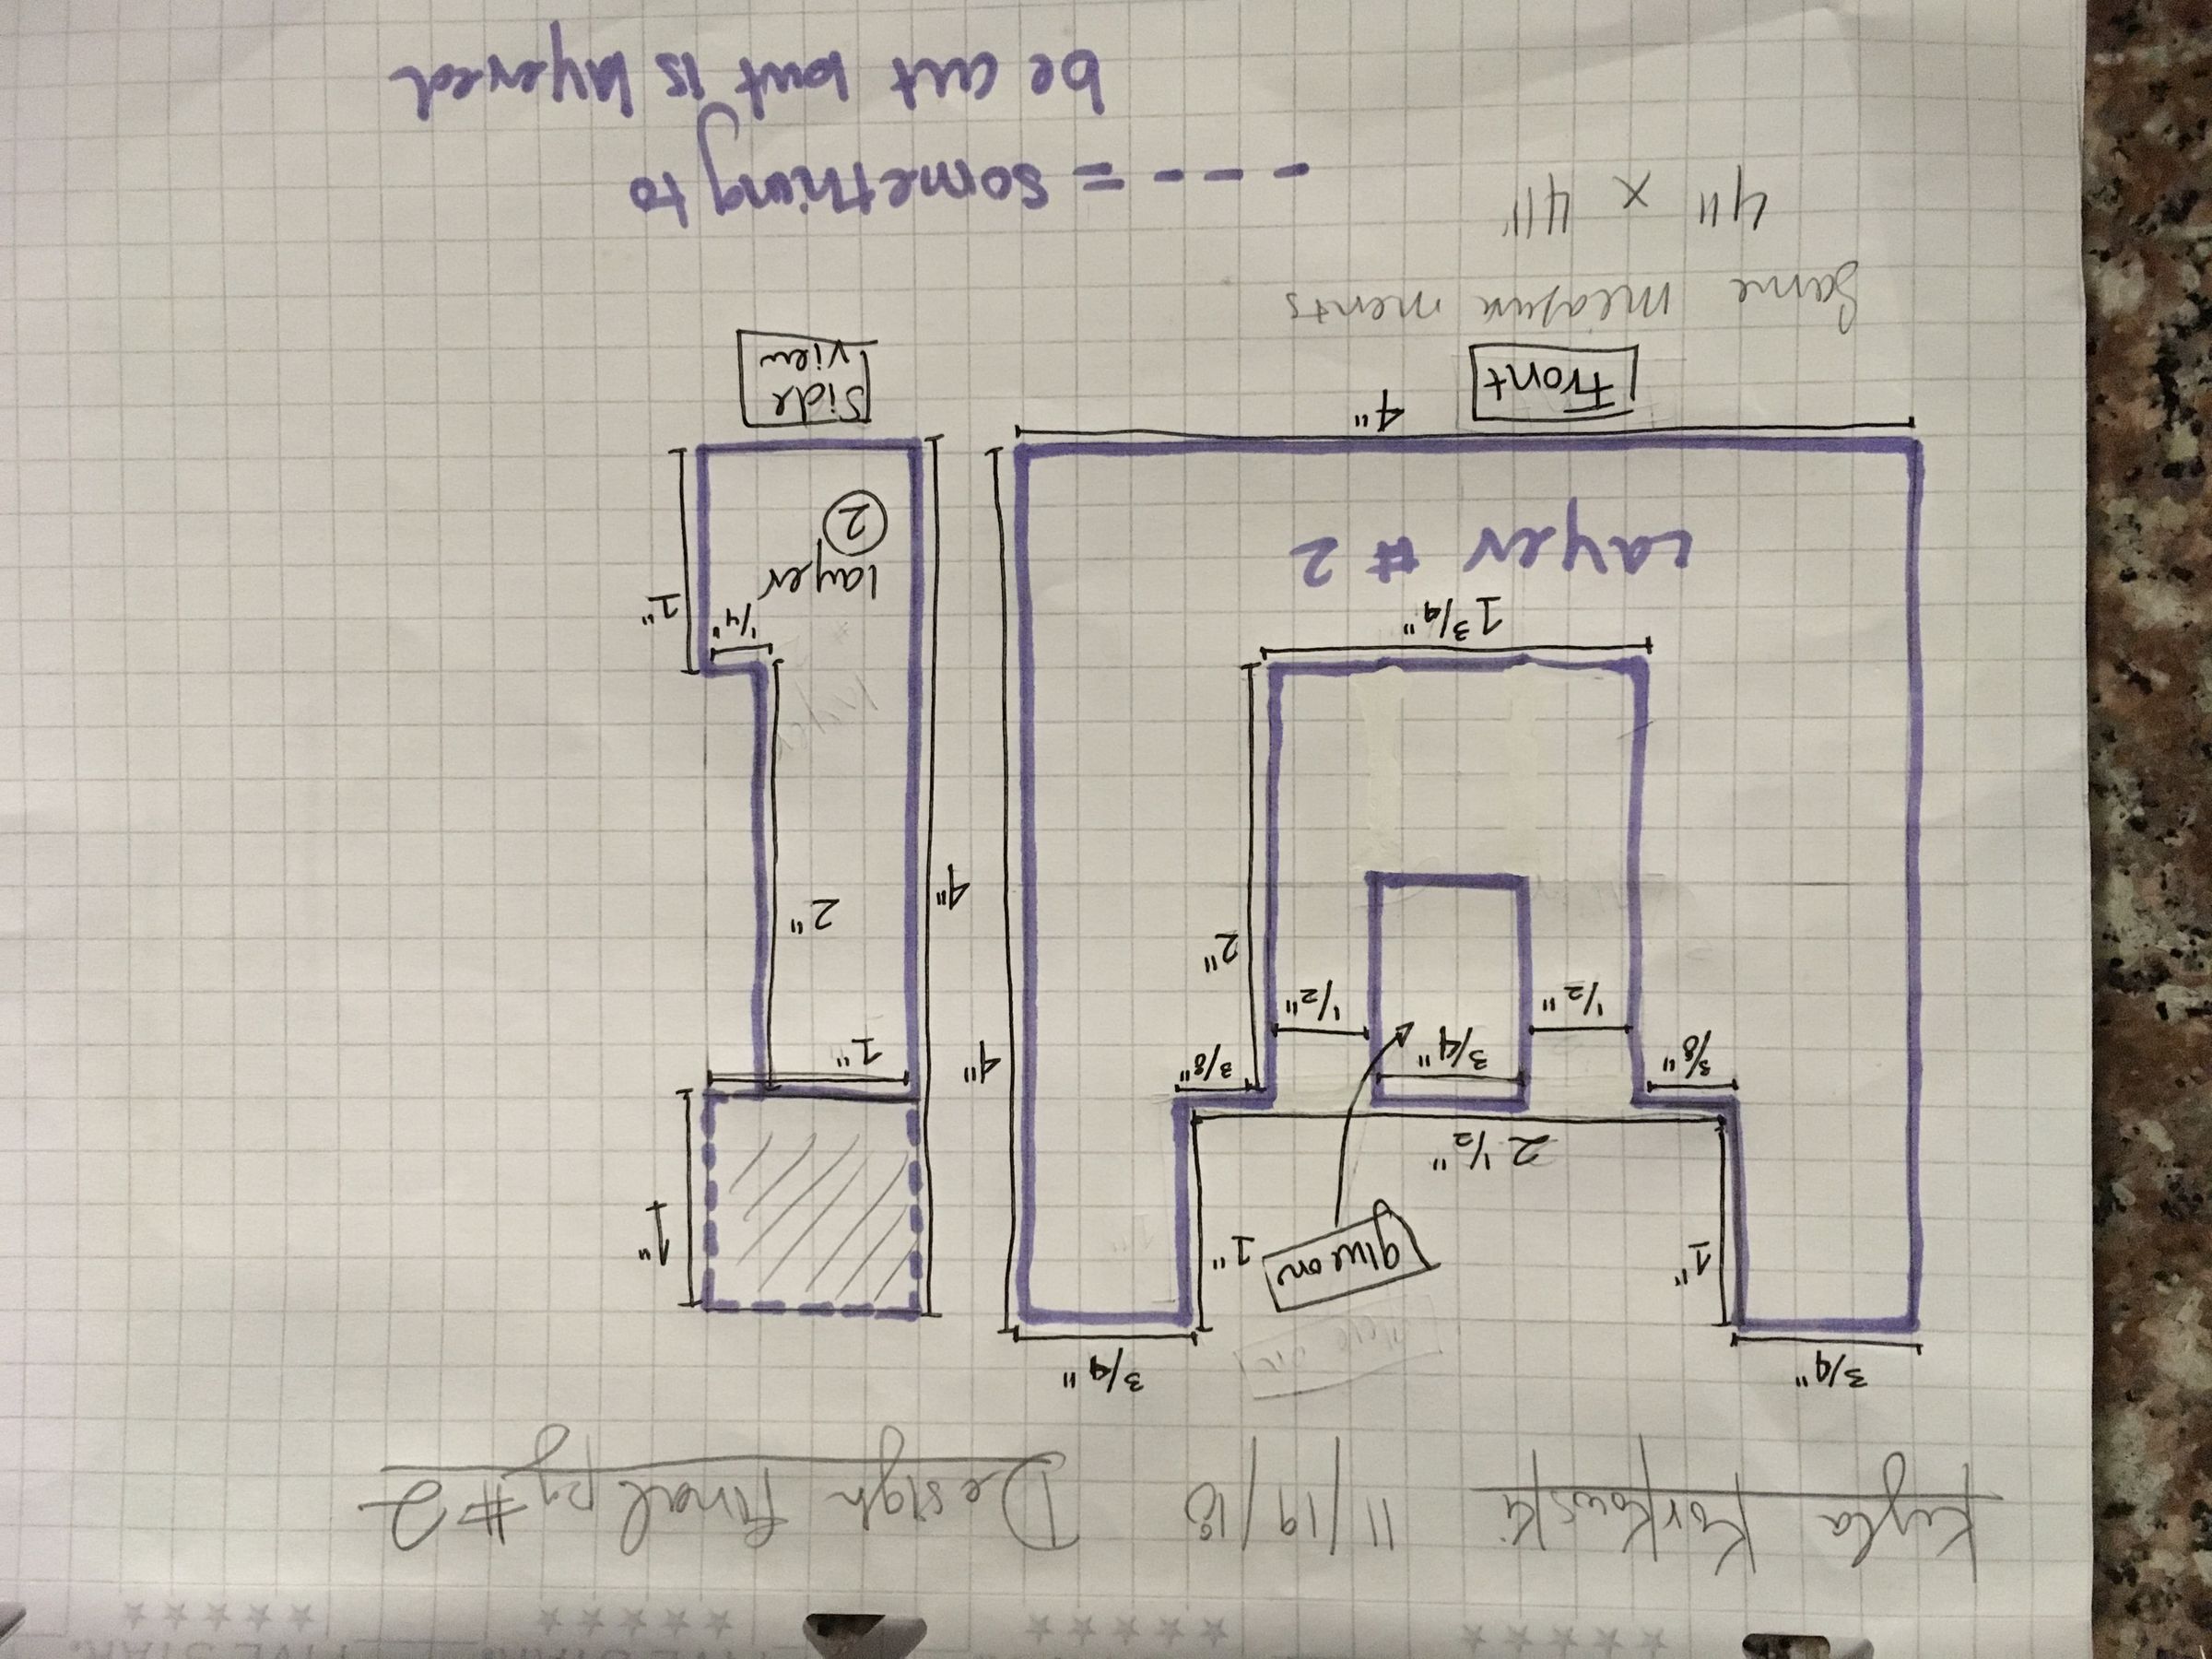 FIVE STAR.
FIVE STAR.
Kyla Korkowski 11/19/18 Design final pg #2
3/4"
3/4"
glue on
1"
1"
2 1/2"
3/8"
3/4"
3/8"
1/2"
1/2"
2"
4"
1 3/4"
Layer # 2
4"
Front
Same measurements
4" x 4"
1"
1"
4"
2"
1/4"
1"
layer
2
Side
view
---- = something to
be cut but is layered